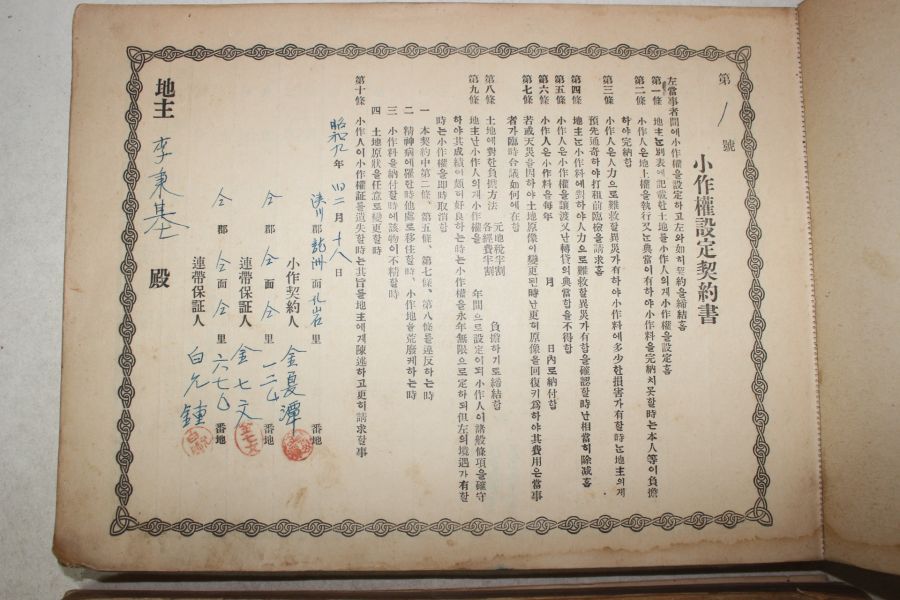 第 1 號
小作權設定契約書
左當事者間에小作權을設定하고左와如히契約을締結홈
第一條 地主는別表에記載한土地를小作人의게小作權을設定홈
第二條 小作人은地上權을執行又는典當이有하야小作料을完納치못할時는本人等이負擔
하야完納함
第三條 小作人은人力으로難救할異災가有하야小作料에多少한損害가有할時는地主의게
預先通寄하야打租前臨檢을請求홈
第四條 地主는小作料에對하야人力으로難救할異災가有함을確認할時난相當히除減홈
第五條 小作人은小作權을讓渡又난轉貸의典當함을不得함
第六條 小作人은小作料을每年 月 日內로納付함
第七條 若或天災을因하야土地原像이變更된時난更히原像을回復키爲하야其費用은當事
者가臨時合議如何에在함
第八條 土地에對한負擔方法 元地稅半割 各經費半割 負擔하기로締結함
第九條 地主난小作人의게小作權을 年間으로設定이되小作人이諸般條項을確守
하야其成績이頗히好良하는時는小作權을永年無限으로定하되但左의境遇가有할
時는小作權을即時取消함
一 本契約中第二條、第五條、第七條、第八條를違反하는時
二 精神病에罹한時他處로移住할時、小作地를荒廢케하는時
三 小作料을納付할時에該物이不精할時
四 土地原狀을任意로變更할時
第十條 小作人이小作權証를遺失할時는其旨를地主에게陳述하고更히請求할事
昭和九年 四二月 十八日
陜川郡 面 里 番地
小作契約人 金夏潭
仝郡 仝面 仝里 一二七番地
連帶保証人 金七文
仝郡 仝面 仝里 六七七番地
連帶保証人 白允鍾
地主 李秉基 殿